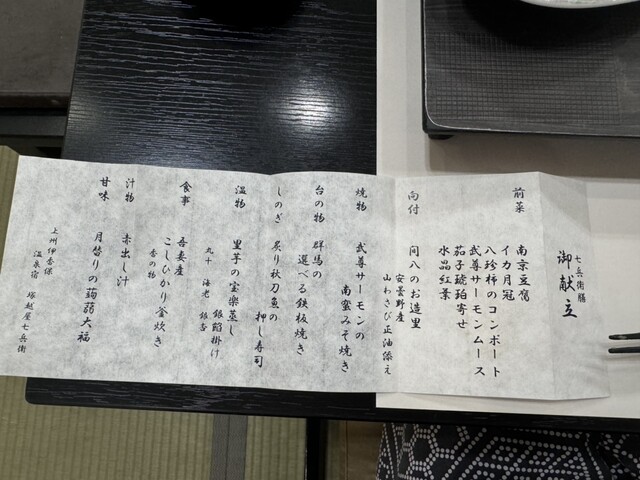 七兵衛膳
御献立
前菜
南京豆腐
イカ月冠
八珍柿のコンポート
武尊サーモンムース
茄子琥珀寄せ
水晶紅葉
向付
間八のお造里
安曇野産
山わさび正油添え
焼物
武尊サーモンの
南蛮みそ焼き
台の物
群馬の
選べる鉄板焼き
しのぎ
炙り秋刀魚の
押し寿司
温物
里芋の宝楽蒸し
銀餡掛け
丸十 海老 銀杏
食事
吾妻産
こしひかり釜炊き
香の物
汁物
赤出し汁
甘味
月替りの蒟蒻大福
上州伊香保
温泉宿 塚越屋七兵衛